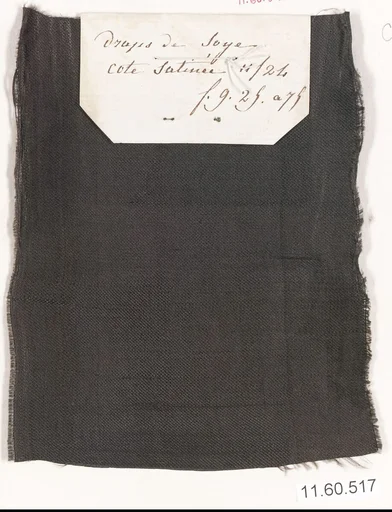 draps de Soye
cote Satinée 11/24
f. 9. 25. a 75
11.60.517